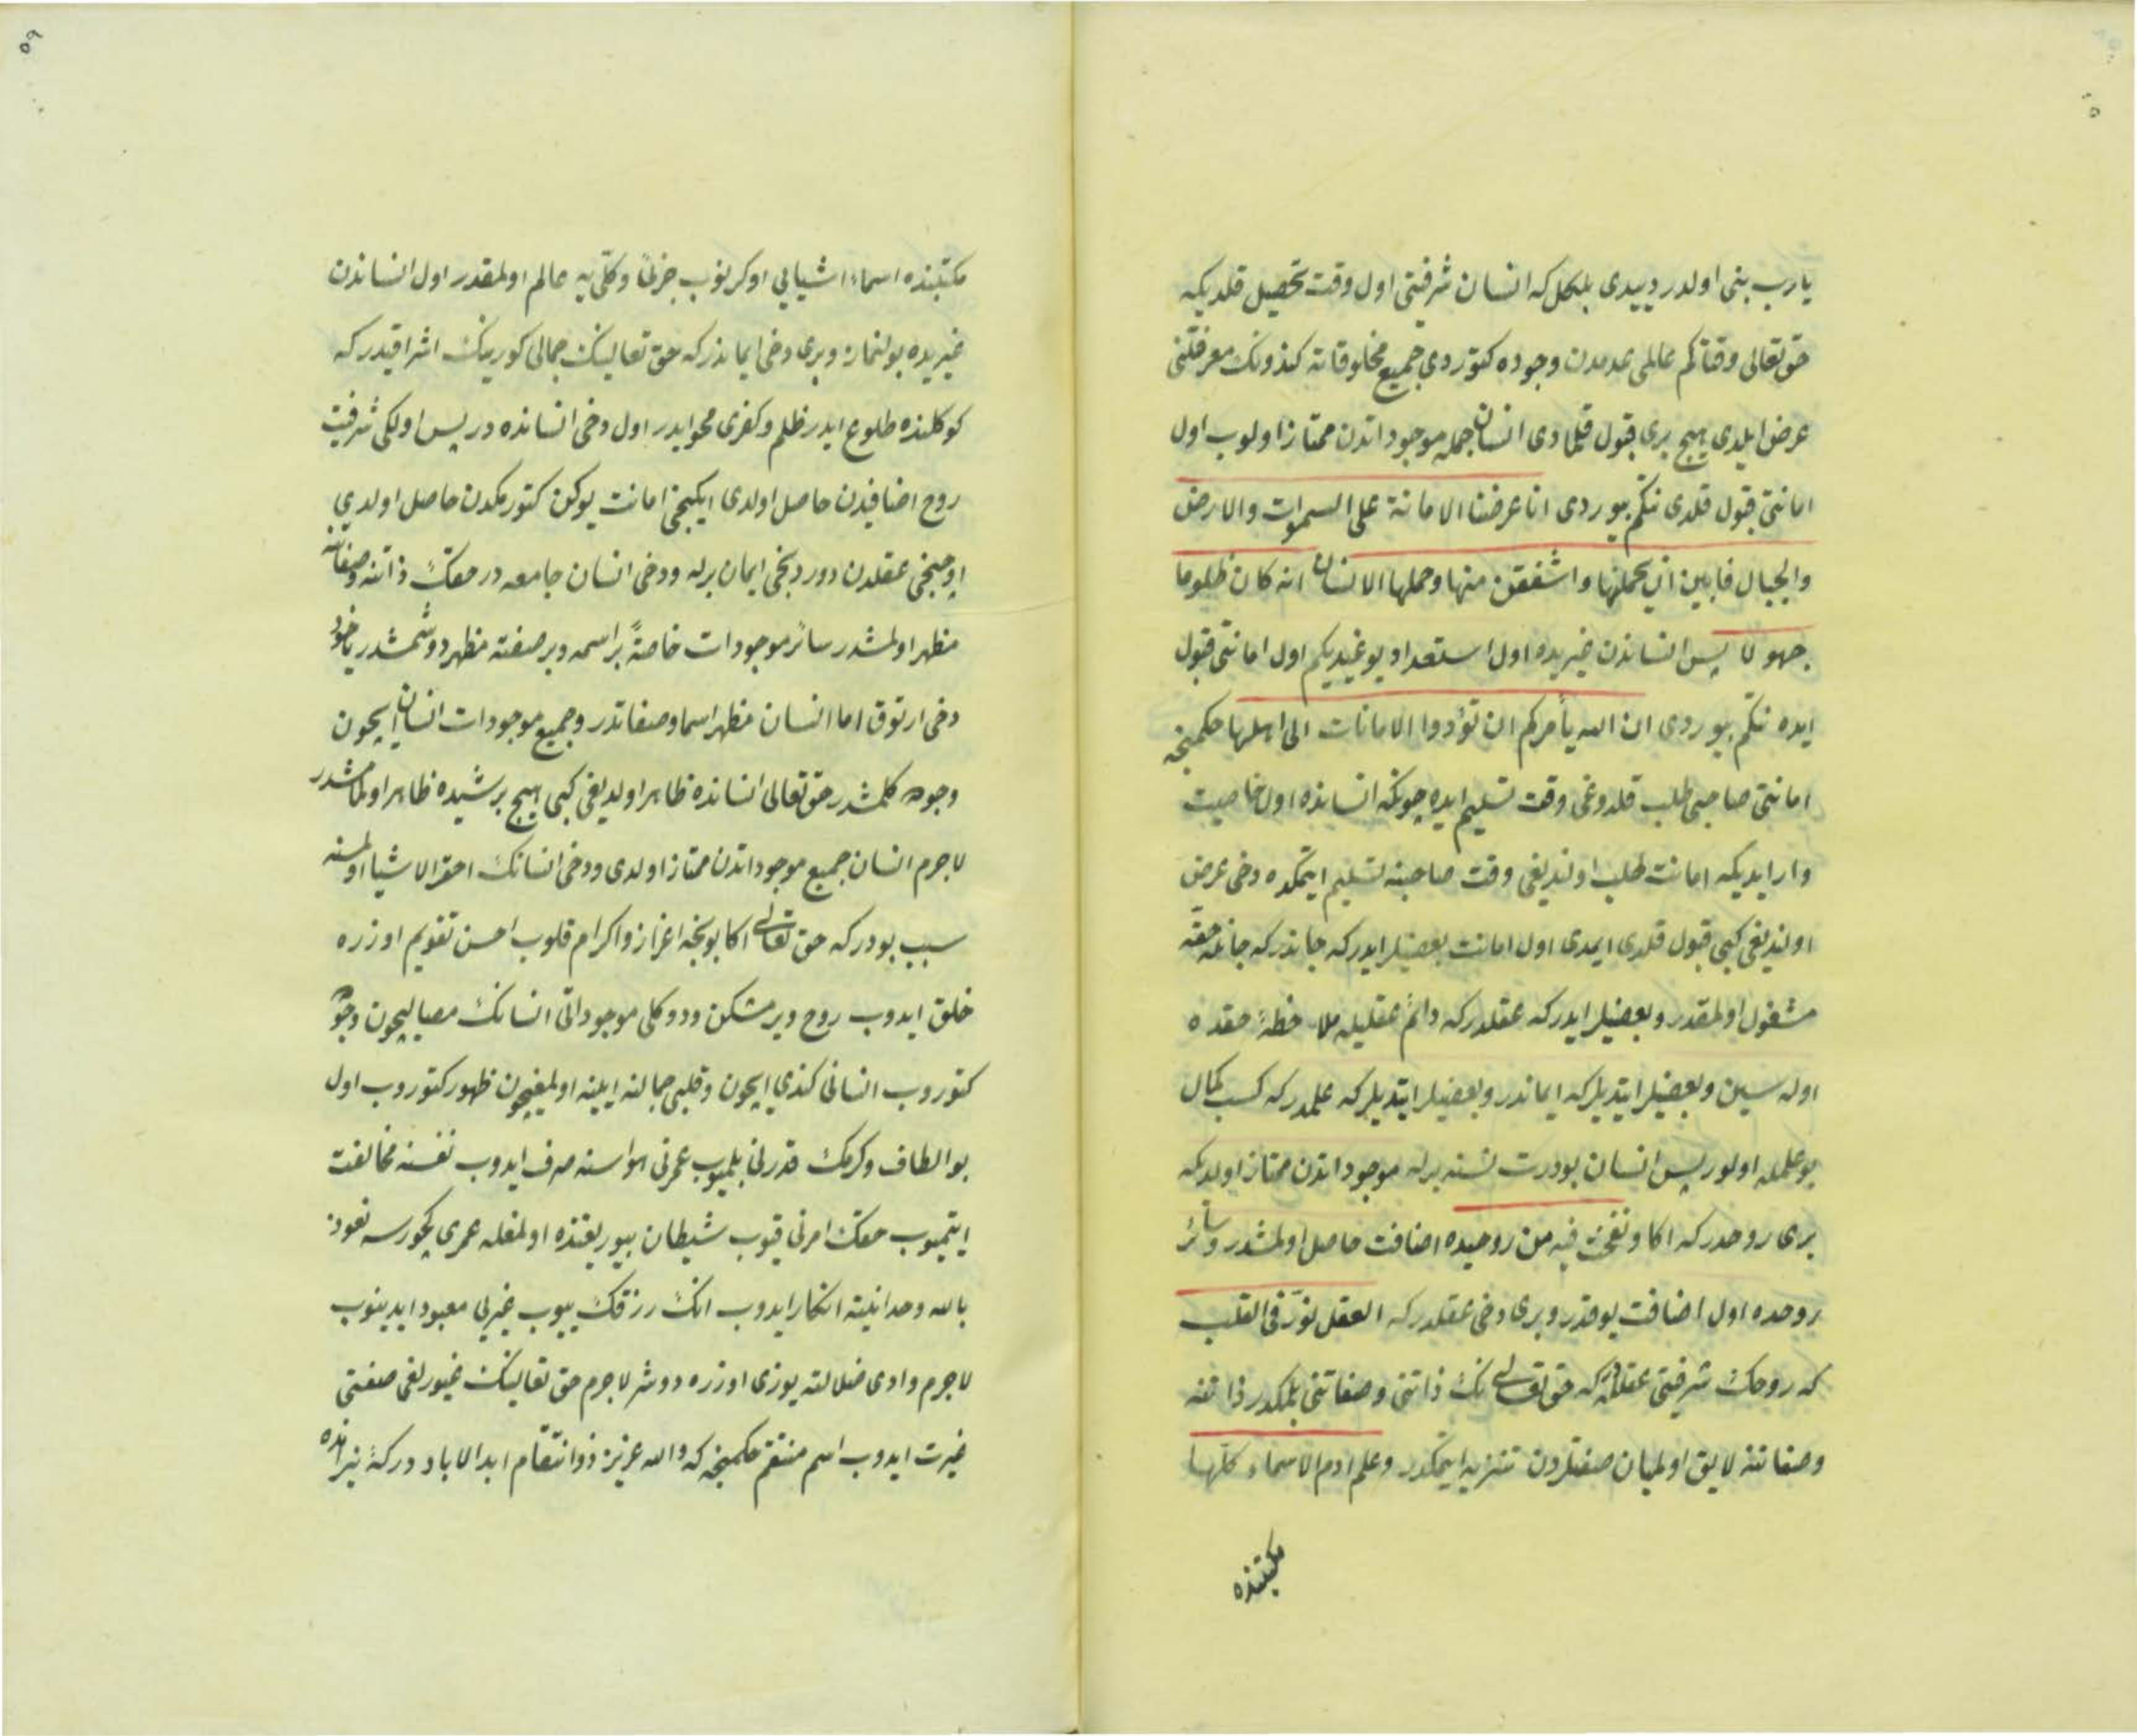 يارب بنى اولدر دييدى بلكل كه انسان شرفيتى اول وقت تحصيل قلديكه
حق تعالى وقتاكم عالمى عدمدن وجوده كتوردى جميع مخلوقاته كندونك معرفتنى
عرض ايلدى هيچ برى قبول قيلمادى انسان جمله موجوداتدن ممتاز اولوب اول
امانتى قبول قلدى نتكم بيوردى انا عرضنا الامانة على السموات والارض
والجبال فابين ان يحملنها واشفقن منها وحملها الانسان انه كان ظلوما
جهولا پس انساندن غيريده اول استعداد يوغيديكم اول امانتى قبول
ايده نتكم بيوردى ان الله يأمركم ان تؤدوا الامانات الى اهلها حكمنجه
امانتى صاحبى طلب قلدوغى وقت تسليم ايده چونكه انسانده اول خاصيت
وار ايديكه امانت طلب اولنديغى وقت صاحبنه تسليم ايتمكده دخى عرض
اولنديغى كبى قبول قلدى ايمدى اول امانت بعضيلر ايدركه جاندركه جانله حقه
مشغول اولمقدر وبعضيلر ايدركه عقلدركه دائم عقليله ملاحظهٔ حقده
اوله سين وبعضيلر ايتديلركه ايماندر وبعضيلر ايتديلركه علمدركه كسب كمال
بو علمله اولور پس انسان بودرت نسنه برله موجوداتدن ممتاز اولدى كه
برى روحدركه اكا ونفخت فيه من روحيده اضافت حاصل اولمشدر وسائر
روحده اول اضافت يوقدر وبرى دخى عقلدركه العقل نور فى القلب
كه روحك شرفيتى عقلله در كه حق تعالى نك ذاتنى وصفاتنى بلمكدر ذاتنه
وصفاتنه لايق اولميان صفتلردن تنزيه ايتمكدر وعلم ادم الاسماء كلها
مكتبنده
٥٩
مكتبنده اسماء اشيايى اوكرنوب جزئى وكلى يه عالم اولمقدر اول انساندن
غيريده بولنماز وبرى دخى ايماندركه حق تعالينك جمالى كورينك اشراقيدركه
كوكلنده طلوع ايدر ظلم وكفرى محو ايدر اول دخى انسانده در پس اولكى شرفيت
روح اضافيدن حاصل اولدى ايكنجى امانت يوكن كتورمكدن حاصل اولدى
اوچنجى عقلدن دوردنجى ايمان برله ودخى انسان جامعه در حقك ذاتنه وصفاتنه
مظهر اولمشدر سائر موجودات خاصةً بر اسمه وبر صفته مظهر دوشمشدر ياخود
دخى ارتوق اما انسان مظهر اسما وصفاتدر وجميع موجودات انسان ايچون
وجوده كلمشدر حق تعالى انسانده ظاهر اولديغى كبى هيچ بر شيده ظاهر اولمامشدر
لاجرم انسان جميع موجوداتدن ممتاز اولدى ودخى انسانك احقر الاشيا اولمسنه
سبب بودركه حق تعالى اكا بونجه اعزاز واكرام قلوب احسن تقويم اوزره
خلق ايدوب روح ويرمشكن ودوكلى موجوداتى انسانك مصاليحچون وجوده
كتوروب انسانى كندى ايچون وقلبى جمالنه ايينه اولمغيچون ظهور كتوروب اول
بو الطاف وكرمك قدرنى بلميوب عمرنى هواسنه صرف ايدوب نفسنه مخالفت
ايتميوب حقك امرنى قيوب شيطان بيوريغنده اولمغله عمرى كچورسه نعوذ
بالله وحدانيته انكار ايدوب انك رزقك ييوب غيرى معبود ايدينوب
لاجرم وادى ضلالته يوزى اوزره دوشر لاجرم حق تعالينك غيورلغى صفتى
غيرت ايدوب اسم منتقم حكمنجه كه والله عزيز ذو انتقام ابد الاباد دركهٔ نيرانده